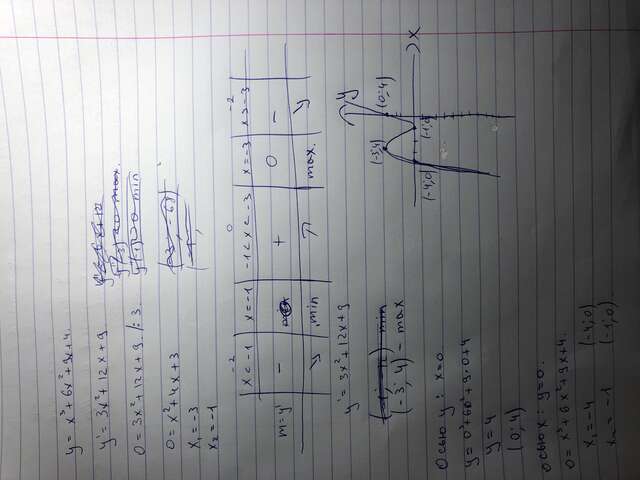 y = x³ + 6x² + 9x + 4.
y' = 3x² + 12x + 9
0 = 3x² + 12x + 9 /: 3
0 = x² + 4x + 3
x₁ = -3
x₂ = -1
y'(-3) = 0 max.
y'(-1) = 0 min
-2 0 -2
x < -1 x = -1 -1 < x < -3 x = -3 x > -3
m = y' - + 0 -
↘ min ↗ max. ↘
y' = 3x² + 12x + 9
(-3; 4) - max
y
(-3; 4)
(0; 4)
(-4; 0)
(-1; 0)
x
Осью y: x = 0
y = 0³ + 6·0² + 9·0 + 4
y = 4
(0; 4)
осью x: y = 0.
0 = x³ + 6x² + 9x + 4.
x₁ = -4 (-4; 0)
x₂ = -1 (-1; 0)